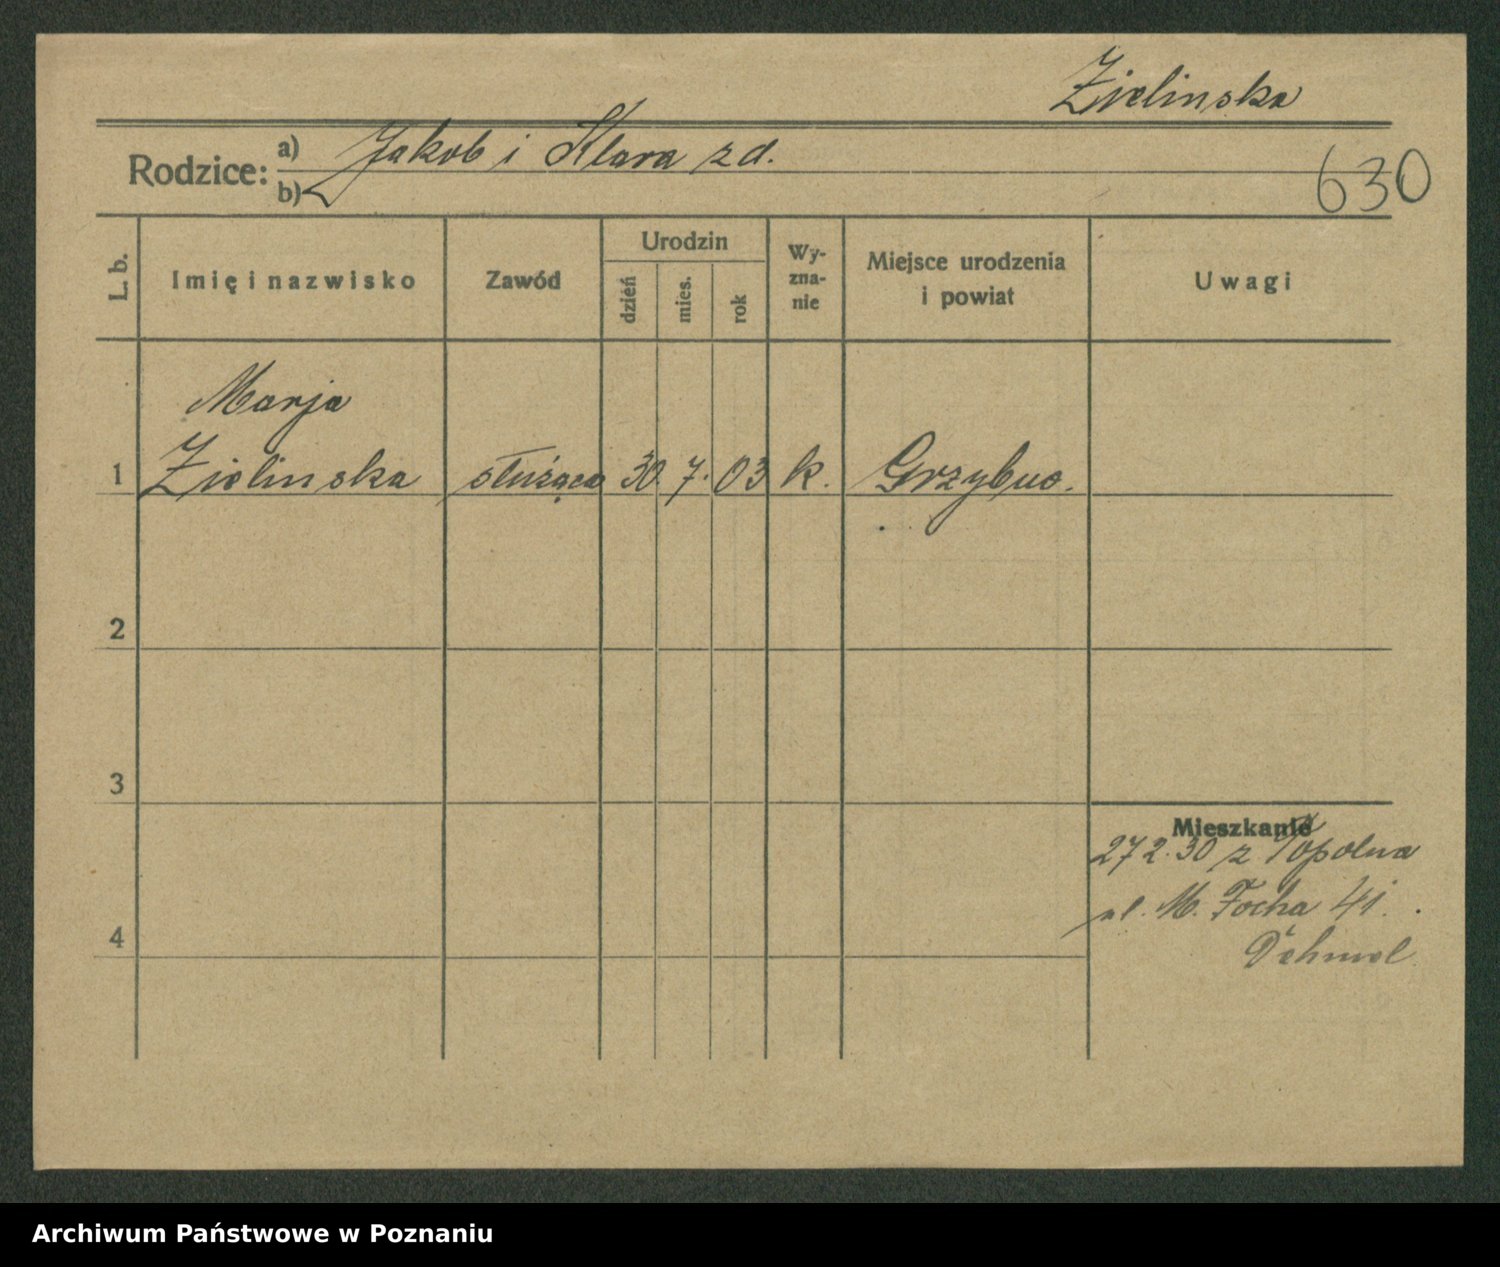 Zielinska
Rodzice: a) Jakob i Klara zd.
b)
630
L. b.
Imię i nazwisko
Zawód
Urodzin
dzień
mies.
rok
Wy-
zna-
nie
Miejsce urodzenia
i powiat
Uwagi
Marja
1 Zielinska służąca 30. 7. 03 k.
2
3
Mieszkanie
27 2. 30 z Topolna
ul. M. Focha 41.
4
Archiwum Państwowe w Poznaniu